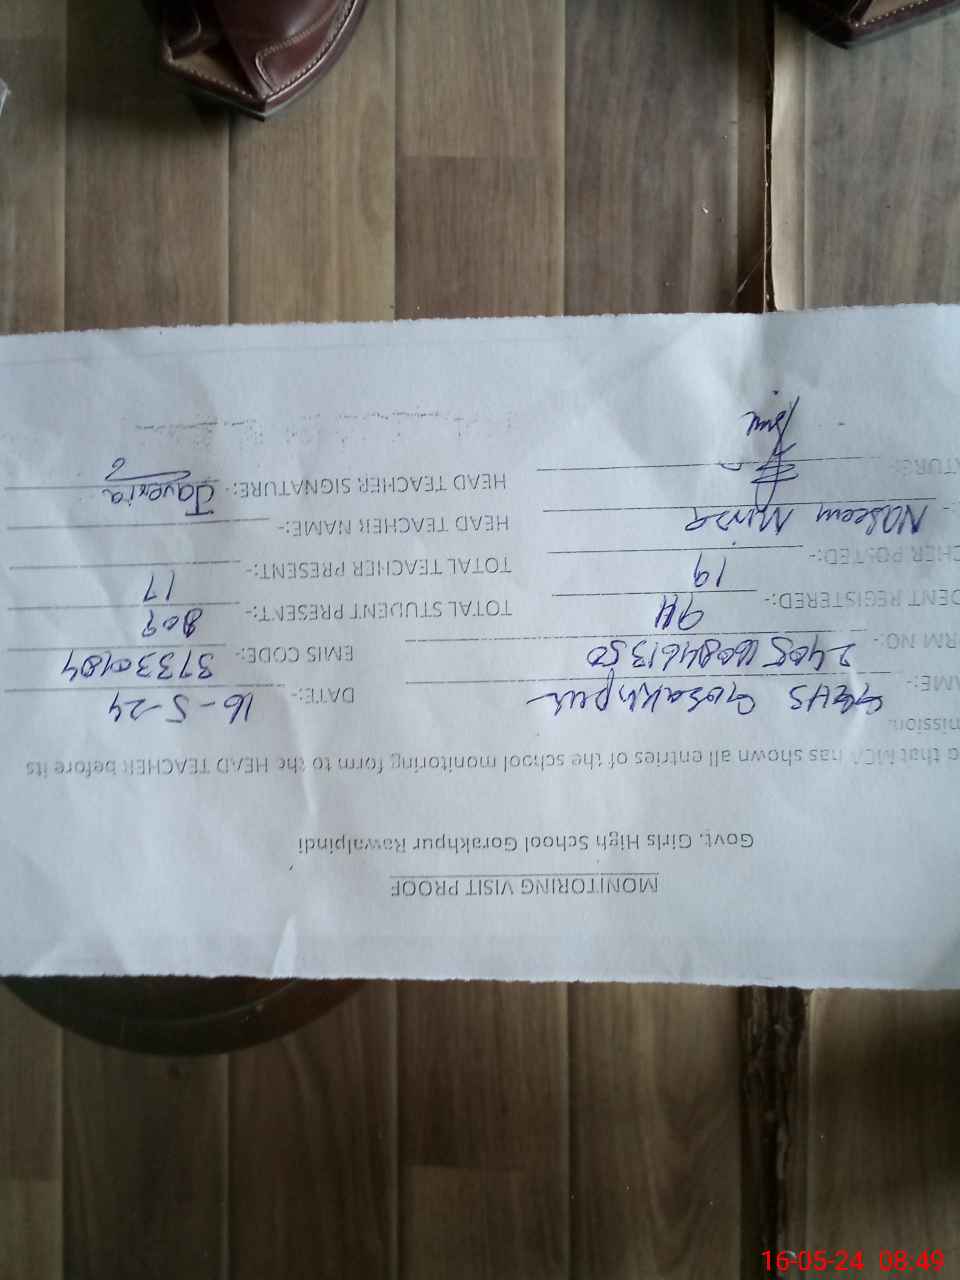 MONITORING VISIT PROOF
Govt. Girls High School Gorakhpur Rawalpindi
that MEA has shown all entries of the school monitoring form to the HEAD TEACHER before its
mission.
AME:- GGHS Gorakhpur DATE:- 16-5-24
RM NO:- EMIS CODE:- 37330184
DENT REGISTERED:- 911 TOTAL STUDENT PRESENT:- 809
CHER POSTED:- 19 TOTAL TEACHER PRESENT:- 17
Naseem Mirza HEAD TEACHER NAME:-
ATURE: HEAD TEACHER SIGNATURE:- Javeria
16-05-24 08:49